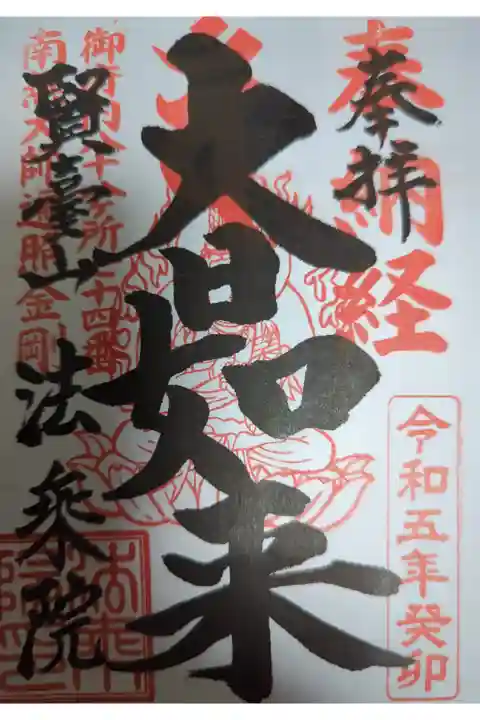 奉納経
奉拝
令和五年癸卯
大日如来
御府内八十八ヶ所七十四番
南無大師遍照金剛
賢臺山 法乗院